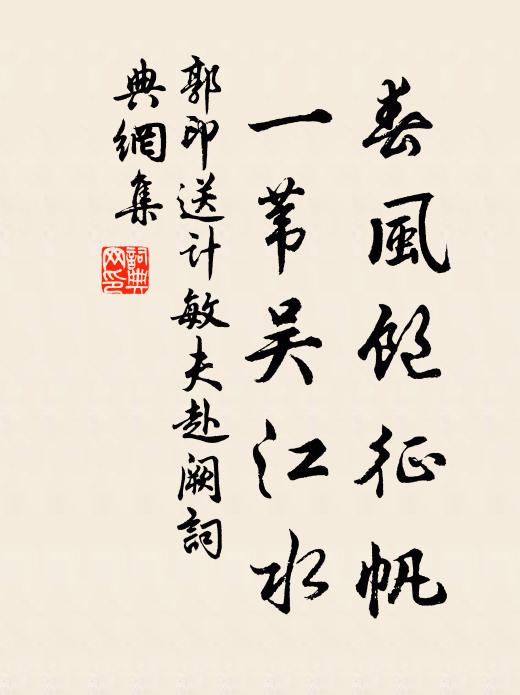 春風飽征帆
一葦吳江水
郭印送計敏夫赴闕詞
典網集
詞典
网印